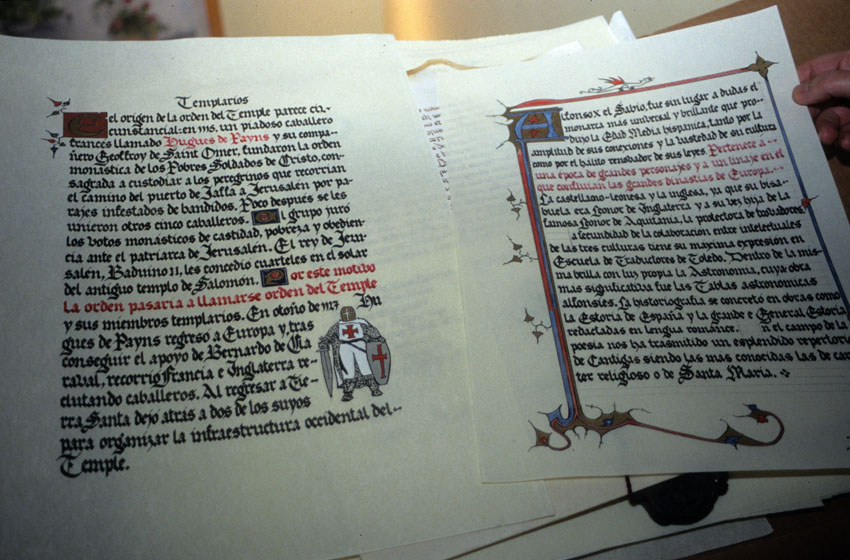 Templarios
El origen de la orden del Temple parece cir-
cunstancial: en 1115, un piadoso caballero
frances llamado Hugues de Payns y su compa-
ñero Geoffroy de Saint Omer, fundaron la orden
monastica de los Pobres Soldados de Cristo, con-
sagrada a custodiar a los peregrinos que recorrian
el camino del puerto de Jaffa a Jerusalen por pa-
rajes infestados de bandidos. Poco despues se les
unieron otros cinco caballeros. El grupo juró
los votos monasticos de castidad, pobreza y obedien-
cia ante el patriarca de Jerusalén. El rey de Jeru-
salén, Balduino II, les concedio cuarteles en el solar
del antiguo templo de Salomón. Por este motivo
la orden pasaria a llamarse orden del Temple
y sus miembros templarios. En otoño de 1123 Hu
gues de Payns regresó a Europa y, tras
conseguir el apoyo de Bernardo de Cla
raval, recorrio Francia e Inglaterra re-
clutando caballeros. Al regresar a Tie-
rra Santa dejo atras a dos de los suyos
para organizar la infraestructura occidental del--
Temple.
Alfonso X el Sabio, fue sin lugar a dudas el
monarca mas universal y brillante que pro-
dujo la Edad Media hispanica, tanto por la
amplitud de sus conexiones y la vastedad de su cultura
como por el halito renovador de sus leyes Pertenece a-
una época de grandes personajes y a un linaje en el
que confluian las grandes dinastias de Europa.
La castellano-leonesa y la inglesa, ya que su bisa-
buela era Leonor de Inglaterra y a su vez hija de la
famosa Leonor de Aquitania, la protectora de trobadores.
a fecundidad de la colaboración entre intelectuales
de las tres culturas tiene su maxima expresión en
Escuela de Traductores de Toledo. Dentro de la mis-
ma brilla con luz propia la Astronomia, cuya obra
mas significativa fue las Tablas astronomicas
alfonsies. La historiografia se concretó en obras como
la Estoria de España y la grande e General Estoria
redactadas en lengua romance. n el campo de la
poesia nos ha trasmitido un esplendido repertorio
de Cantigas siendo las mas conocidas las de carac
ter religioso o de Santa Maria.